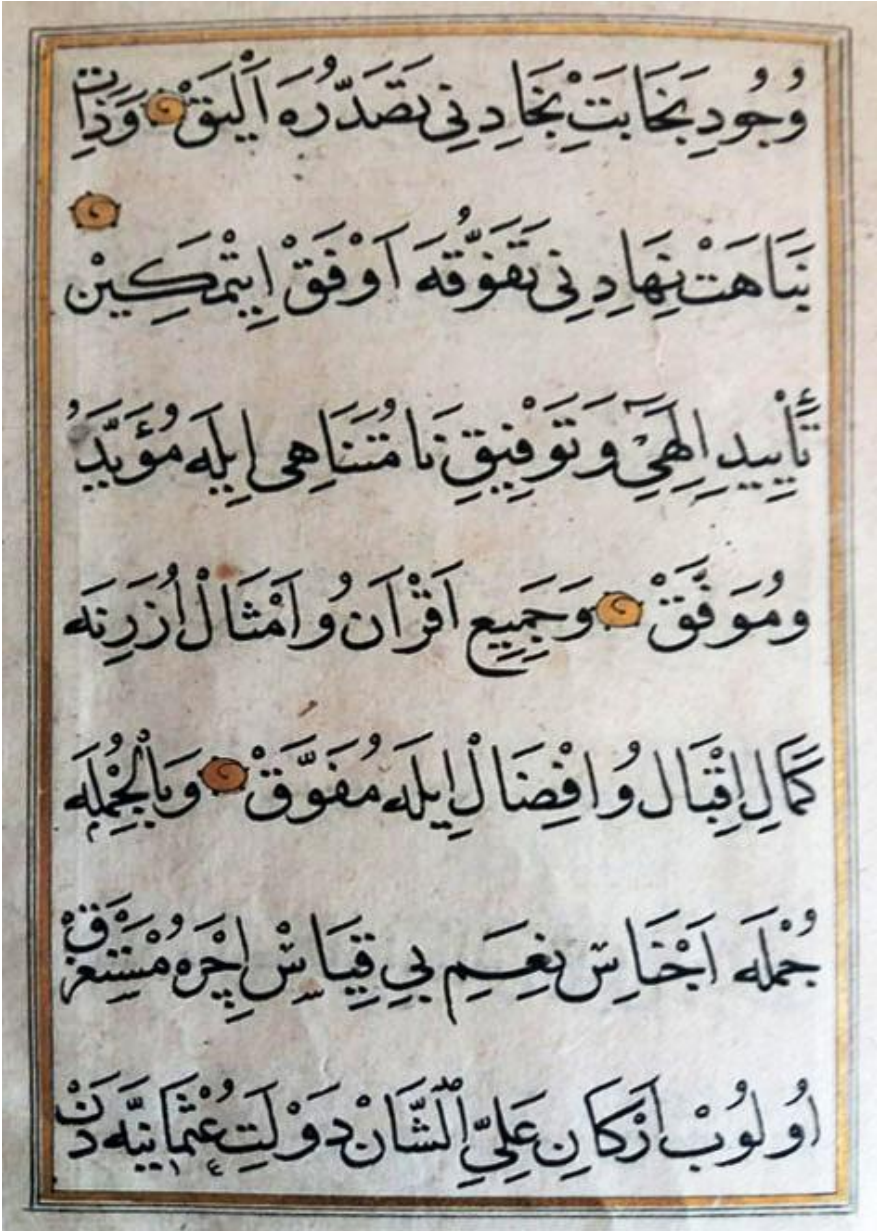 وُجُودِ نَجَابَتِ نِجَادِنِى تَصَدُّرَهَ اَلْيَقْ وَذَاتِ
نَبَاهَتْ نِهَادِنِى تَفَوُّقَهَ اَوْفَقْ اِيتْمَكِيْنْ
تَأْيِيدِ اِلٰهِىِٔ وَ تَوْفِيقِ نَا مُتَنَاهِى اِيلَه مُؤَيَّدُ
و مُوَفَّقْ وَجَمِيعِ اَقْرَان وُ اَمْثَالْ اُزَرِنَه
كَمَالِ اِقْبَال وُ اِفْضَالْ اِيلَه مُفَوَّقْ وَبِالْجُمْلَه
جُمْلَه اَجْنَاسِ نِعَمِ بِي قِيَاسْ اِچْرَه مُسْتَغْرَقْ
اُولُوبْ اَرْكَانِ عَلِيِّ الشَّانْ دَوْلَتِ عُثْمَانِيَّه دَنْ